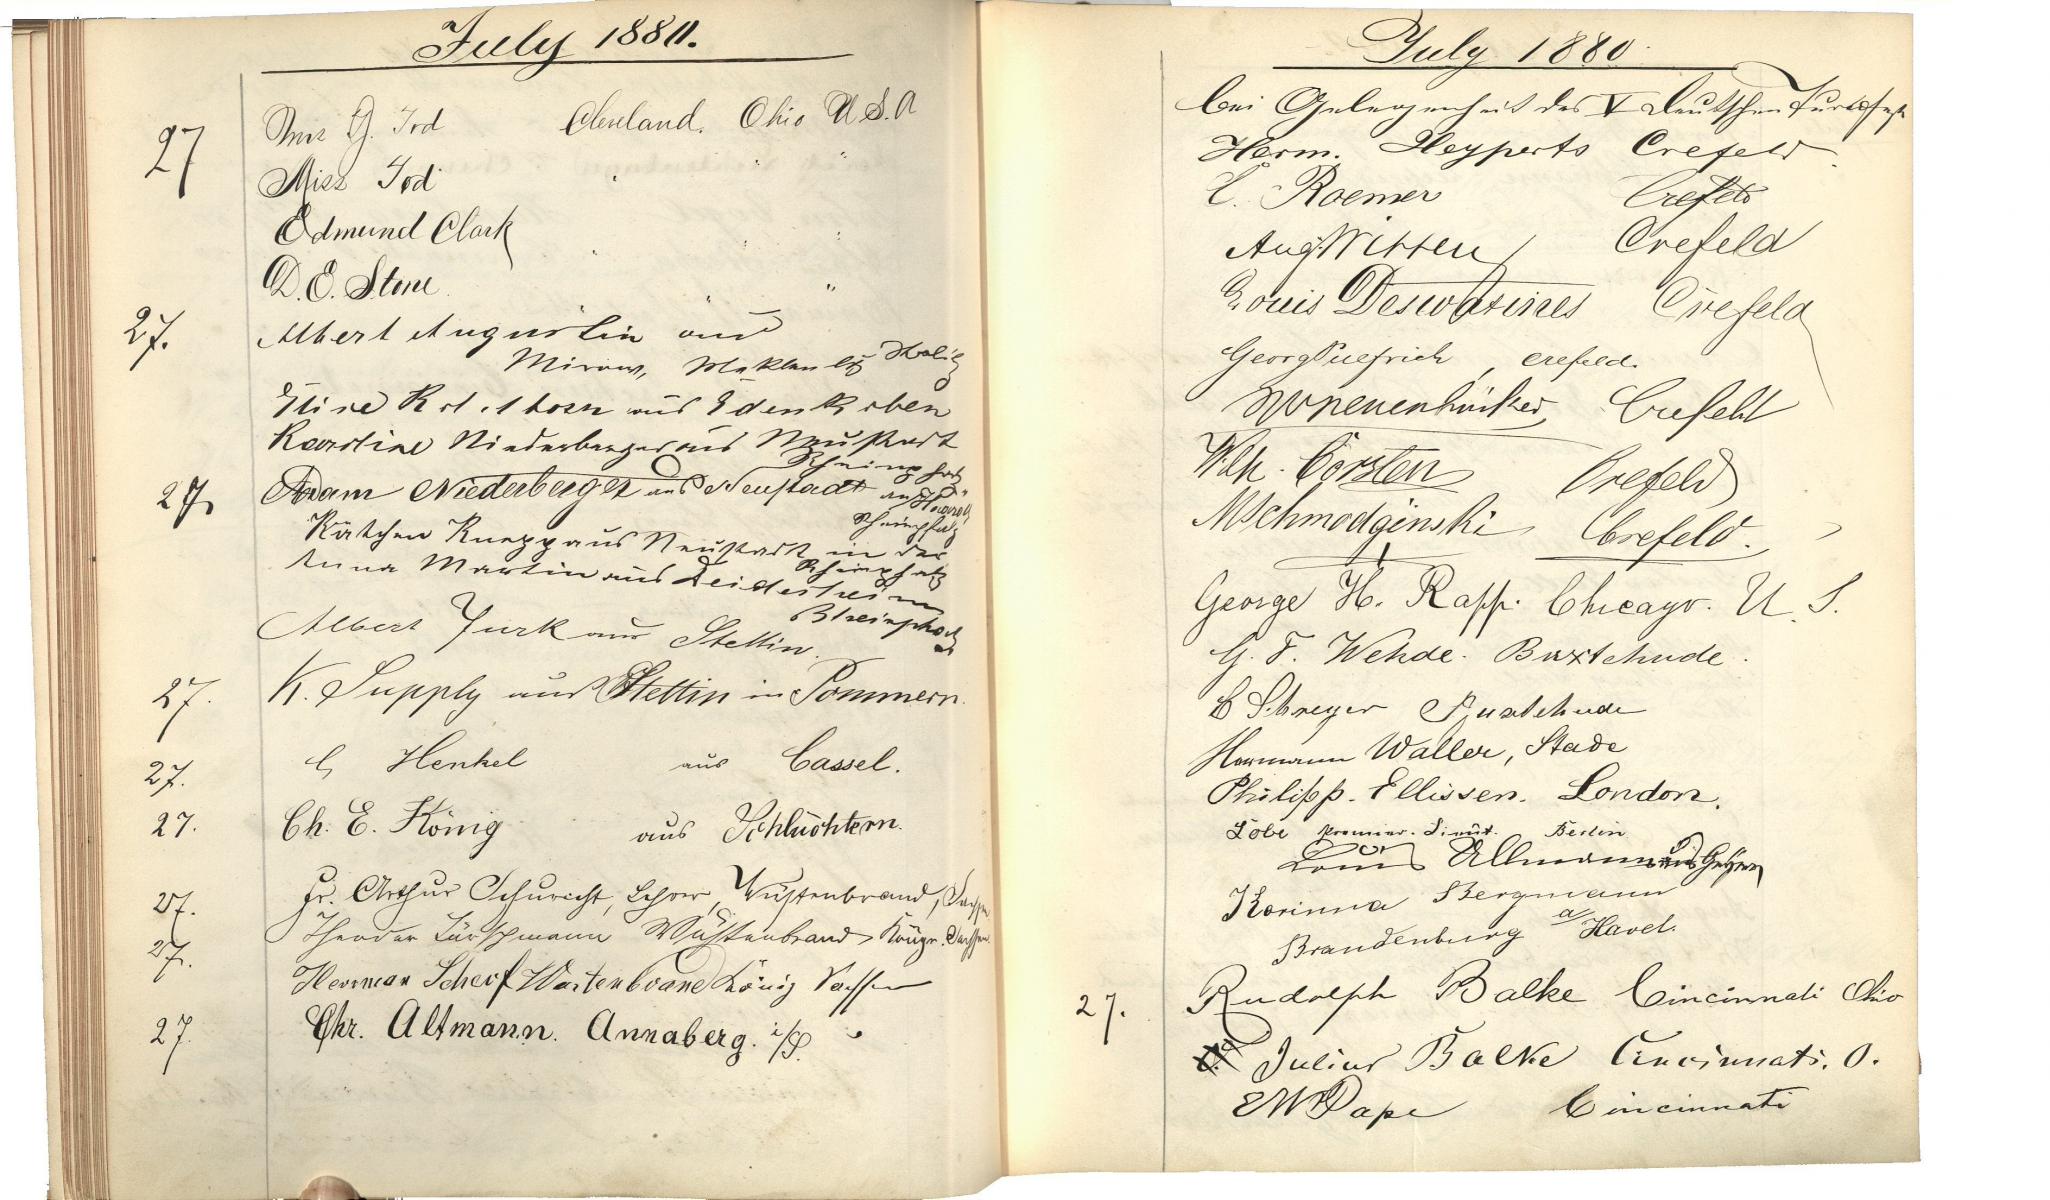 July 1880.
27
Mrs G. Tod Cleveland. Ohio U.S.A
Miss Tod " " "
Edmund Clark " " "
D. E. Stone " " "
27.
Albert Augustin aus
Mirow,
aus Edenkoben
Karoline Niederberger aus Neustadt
Rheinpfalz
27.
Adam Niederberger aus Neustadt
Rheinpfalz
Kätchen Knapp aus Neustadt in der
Rheinpfalz
Anna Martin aus Deidesheim
Rheinpfalz
Albert Jurk aus Stettin.
27.
K. Supply aus Stettin in Pommern.
27.
C Henkel aus Cassel.
27.
Ch. E. König aus Schlüchtern.
27.
Fr. Arthur Schuricht, Lehrer, Wüstenbrand, Sachsen
27.
Theodor Wüstenbrand, Königr. Sachsen.
Herrman Scherf Wüstenbrand König Sachsen
27.
Chr. Altmann. Annaberg. i/S.
July 1880.
bei Gelegenheit des V deutschen Turnfestes
Herm. Heyperts Crefeld.
C. Roemer Crefeld
Aug. Witten Crefeld
Louis Crefeld
Georg Pulfrich, Crefeld.
Crefeld
Wilh. Corsten Crefeld
M Schmodginski Crefeld.
George H. Rapp. Chicago. U. S.
G. F. Wehde. Buxtehude.
Buxtehude
Hermann Waller, Stade
Philipp. Ellissen. London.
Löbe Premier. Lieut. Berlin
Louis Ullmann aus
Korinna Bergmann
Brandenburg a/Havel.
27.
Rudolph Balke Cincinnati Ohio
Julius Balke Cincinnati. O.
E W Pape Cincinnati